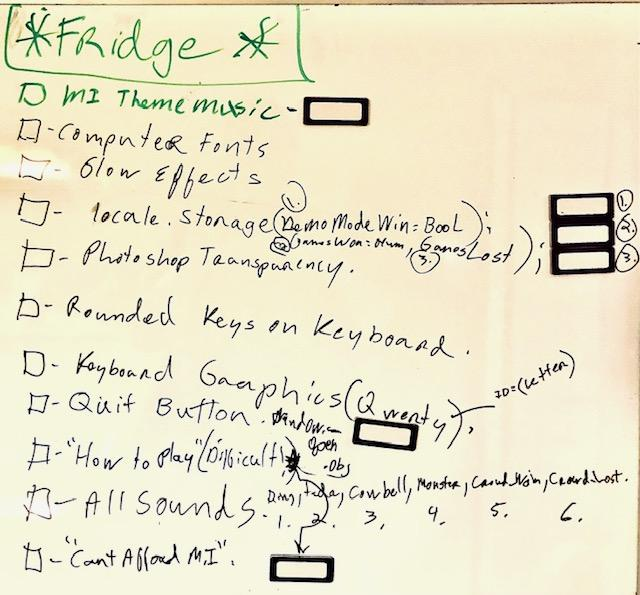 *Fridge *
MI Theme Music -
- Computer Fonts
- Glow Effects
1.
- locale.storage(DemoModeWin = Bool);
2. GamesWon = Num, GamesLost);
3.
1.
2.
3.
- Photoshop Transparency.
- Rounded Keys on Keyboard.
- Keyboard Graphics (Qwerty),
ID=(letter)
- Quit Button. Window.
open
- "How to Play" (Difficult)
.Obj
- All Sounds - Ding, tada, Cowbell, Monster, Crowd_Win, Crowd_Lost.
1. 2. 3. 4. 5. 6.
- "Cant Afford M.I".